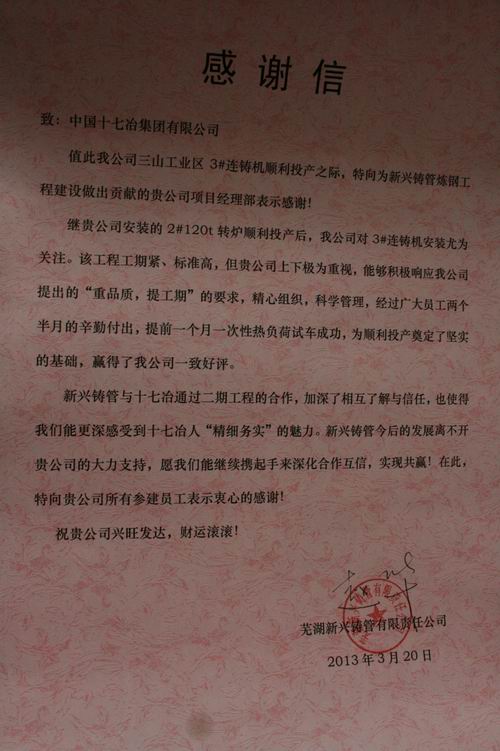 感谢信
致：中国十七冶集团有限公司
值此我公司三山工业区 3#连铸机顺利投产之际，特向为新兴铸管炼钢工
程建设做出贡献的贵公司项目经理部表示感谢！
继贵公司安装的 2#120t 转炉顺利投产后，我公司对 3#连铸机安装尤为
关注。该工程工期紧、标准高，但贵公司上下极为重视，能够积极响应我公司
提出的“重品质，提工期”的要求，精心组织，科学管理，经过广大员工两个
半月的辛勤付出，提前一个月一次性热负荷试车成功，为顺利投产奠定了坚实
的基础，赢得了我公司一致好评。
新兴铸管与十七冶通过二期工程的合作，加深了相互了解与信任，也使得
我们能更深感受到十七冶人“精细务实”的魅力。新兴铸管今后的发展离不开
贵公司的大力支持，愿我们能继续携起手来深化合作互信，实现共赢！在此，
特向贵公司所有参建员工表示衷心的感谢！
祝贵公司兴旺发达，财运滚滚！
芜湖新兴铸管有限责任公司
2013 年 3 月 20 日